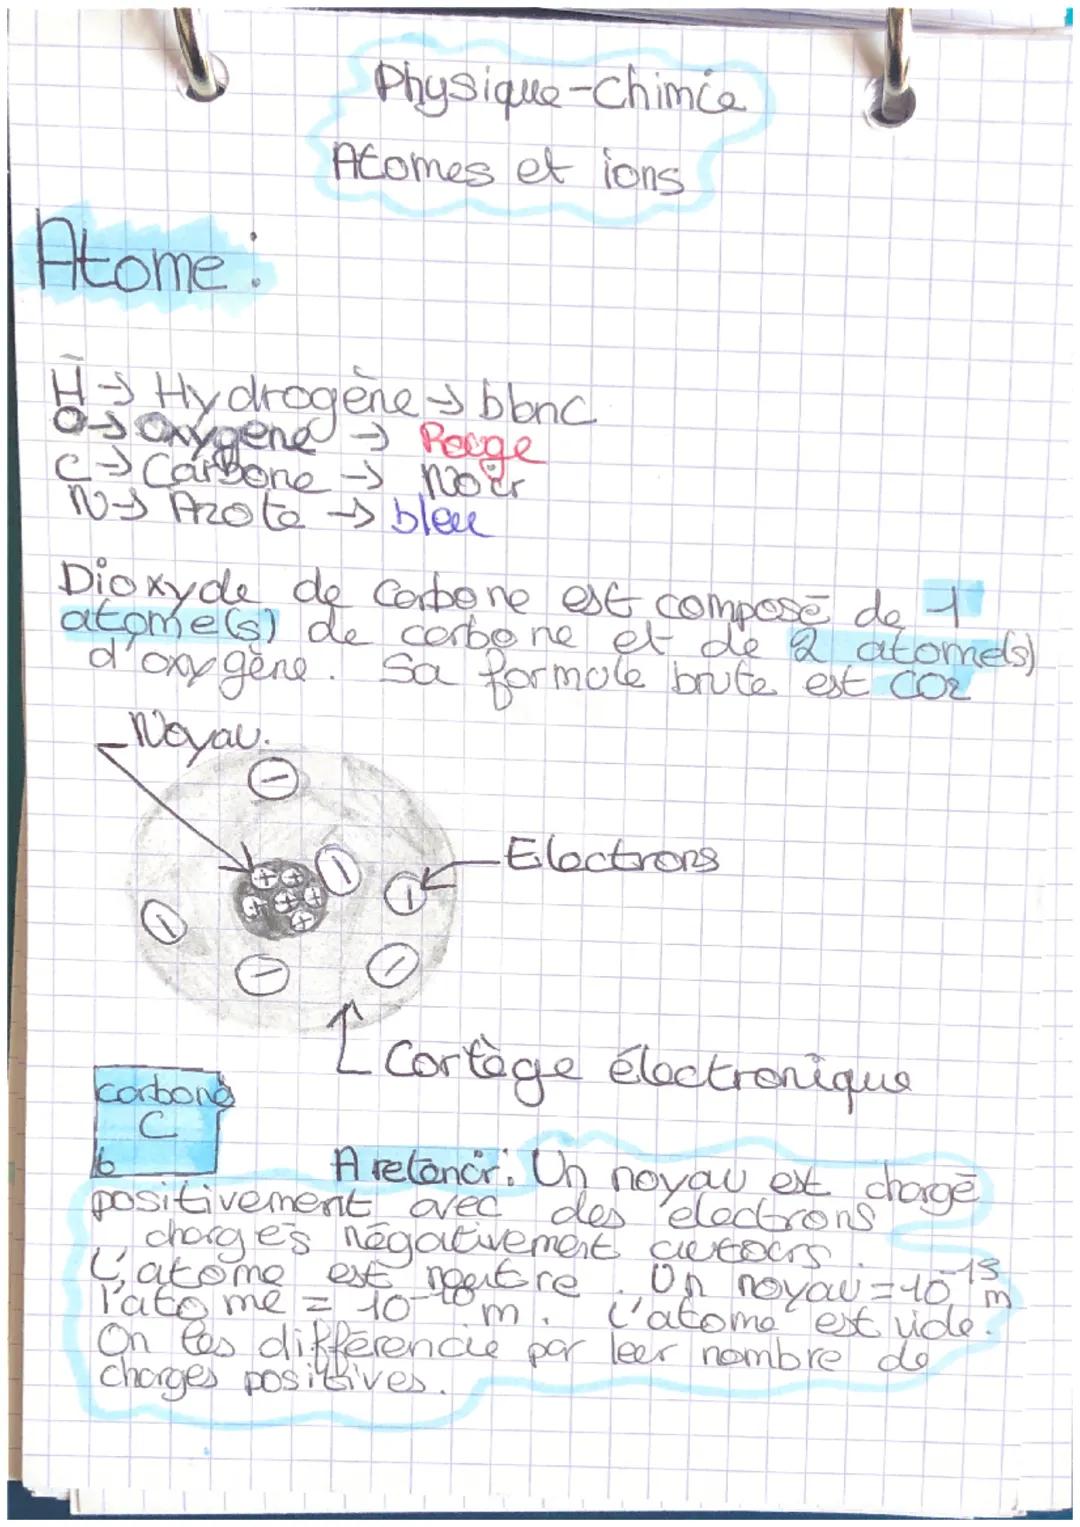 Physique-Chimie
Atomes et ions
Atome :
H → Hydrogène → blanc
O → Oxygène → Rouge
C → Carbone → Noir
N → Azote → bleu
Dioxyde de carbone est composé de 1
atome(s) de carbone et de 2 atome(s)
d'oxygène. Sa formole brute est CO2
Noyau.
Electrons
Cortège électronique
carbone
C
6
A retenir : Un noyau est chargé
positivement avec des électrons
chargés négativement autours.
L'atome est neutre. Un noyau = 10⁻¹⁵ m
l'atome = 10⁻¹⁰ m. L'atome est vide.
On les différencie par leur nombre de
charges positives.